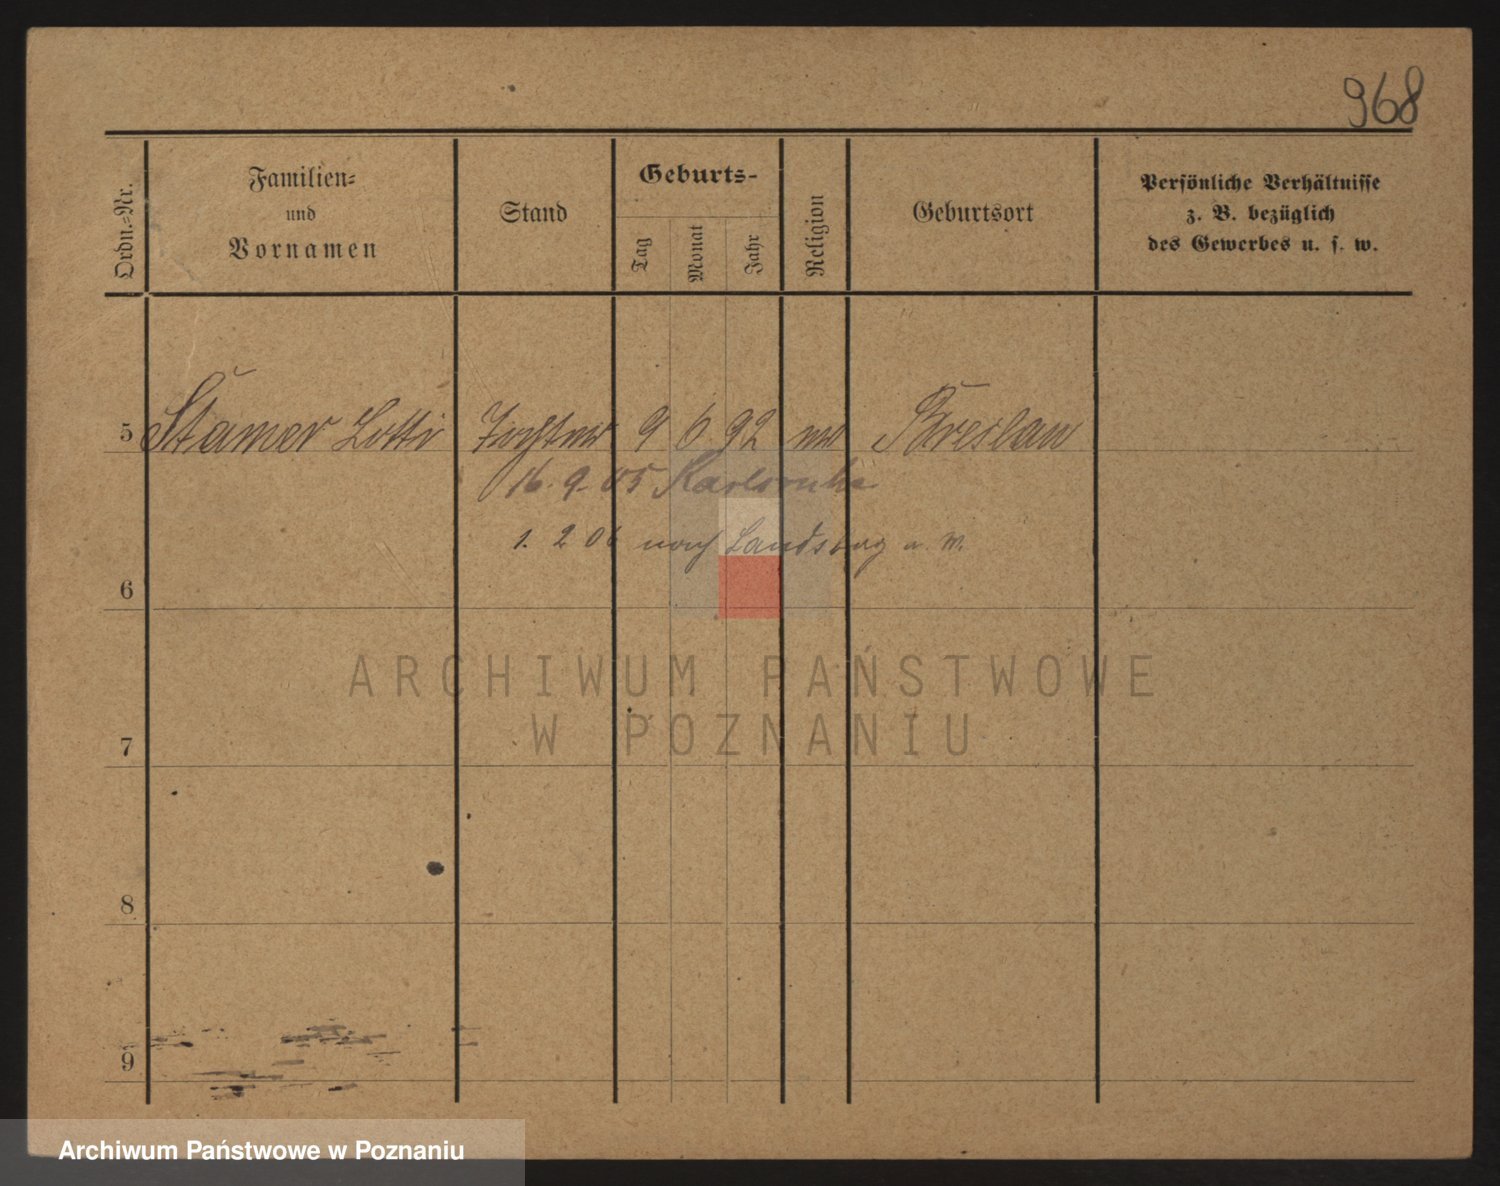 968
Ordn.-Nr.
Familien-
und
Vornamen
Stand
Geburts-
Tag
Monat
Jahr
Religion
Geburtsort
Persönliche Verhältnisse
z. B. bezüglich
des Gewerbes u. s. w.
5 Stamer Lotti Tochter 9 6 92 Breslau
16. 9. 05 Karlsruhe
1. 2 06 nach Landsberg a. W.
6
ARCHIWUM PAŃSTWOWE
W POZNANIU
7
8
9
Archiwum Państwowe w Poznaniu